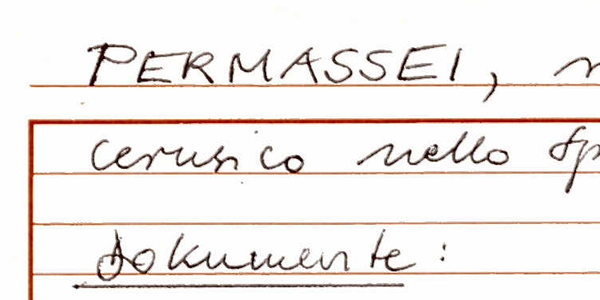 PERMASSEI,
cerusico nello
dokumente: